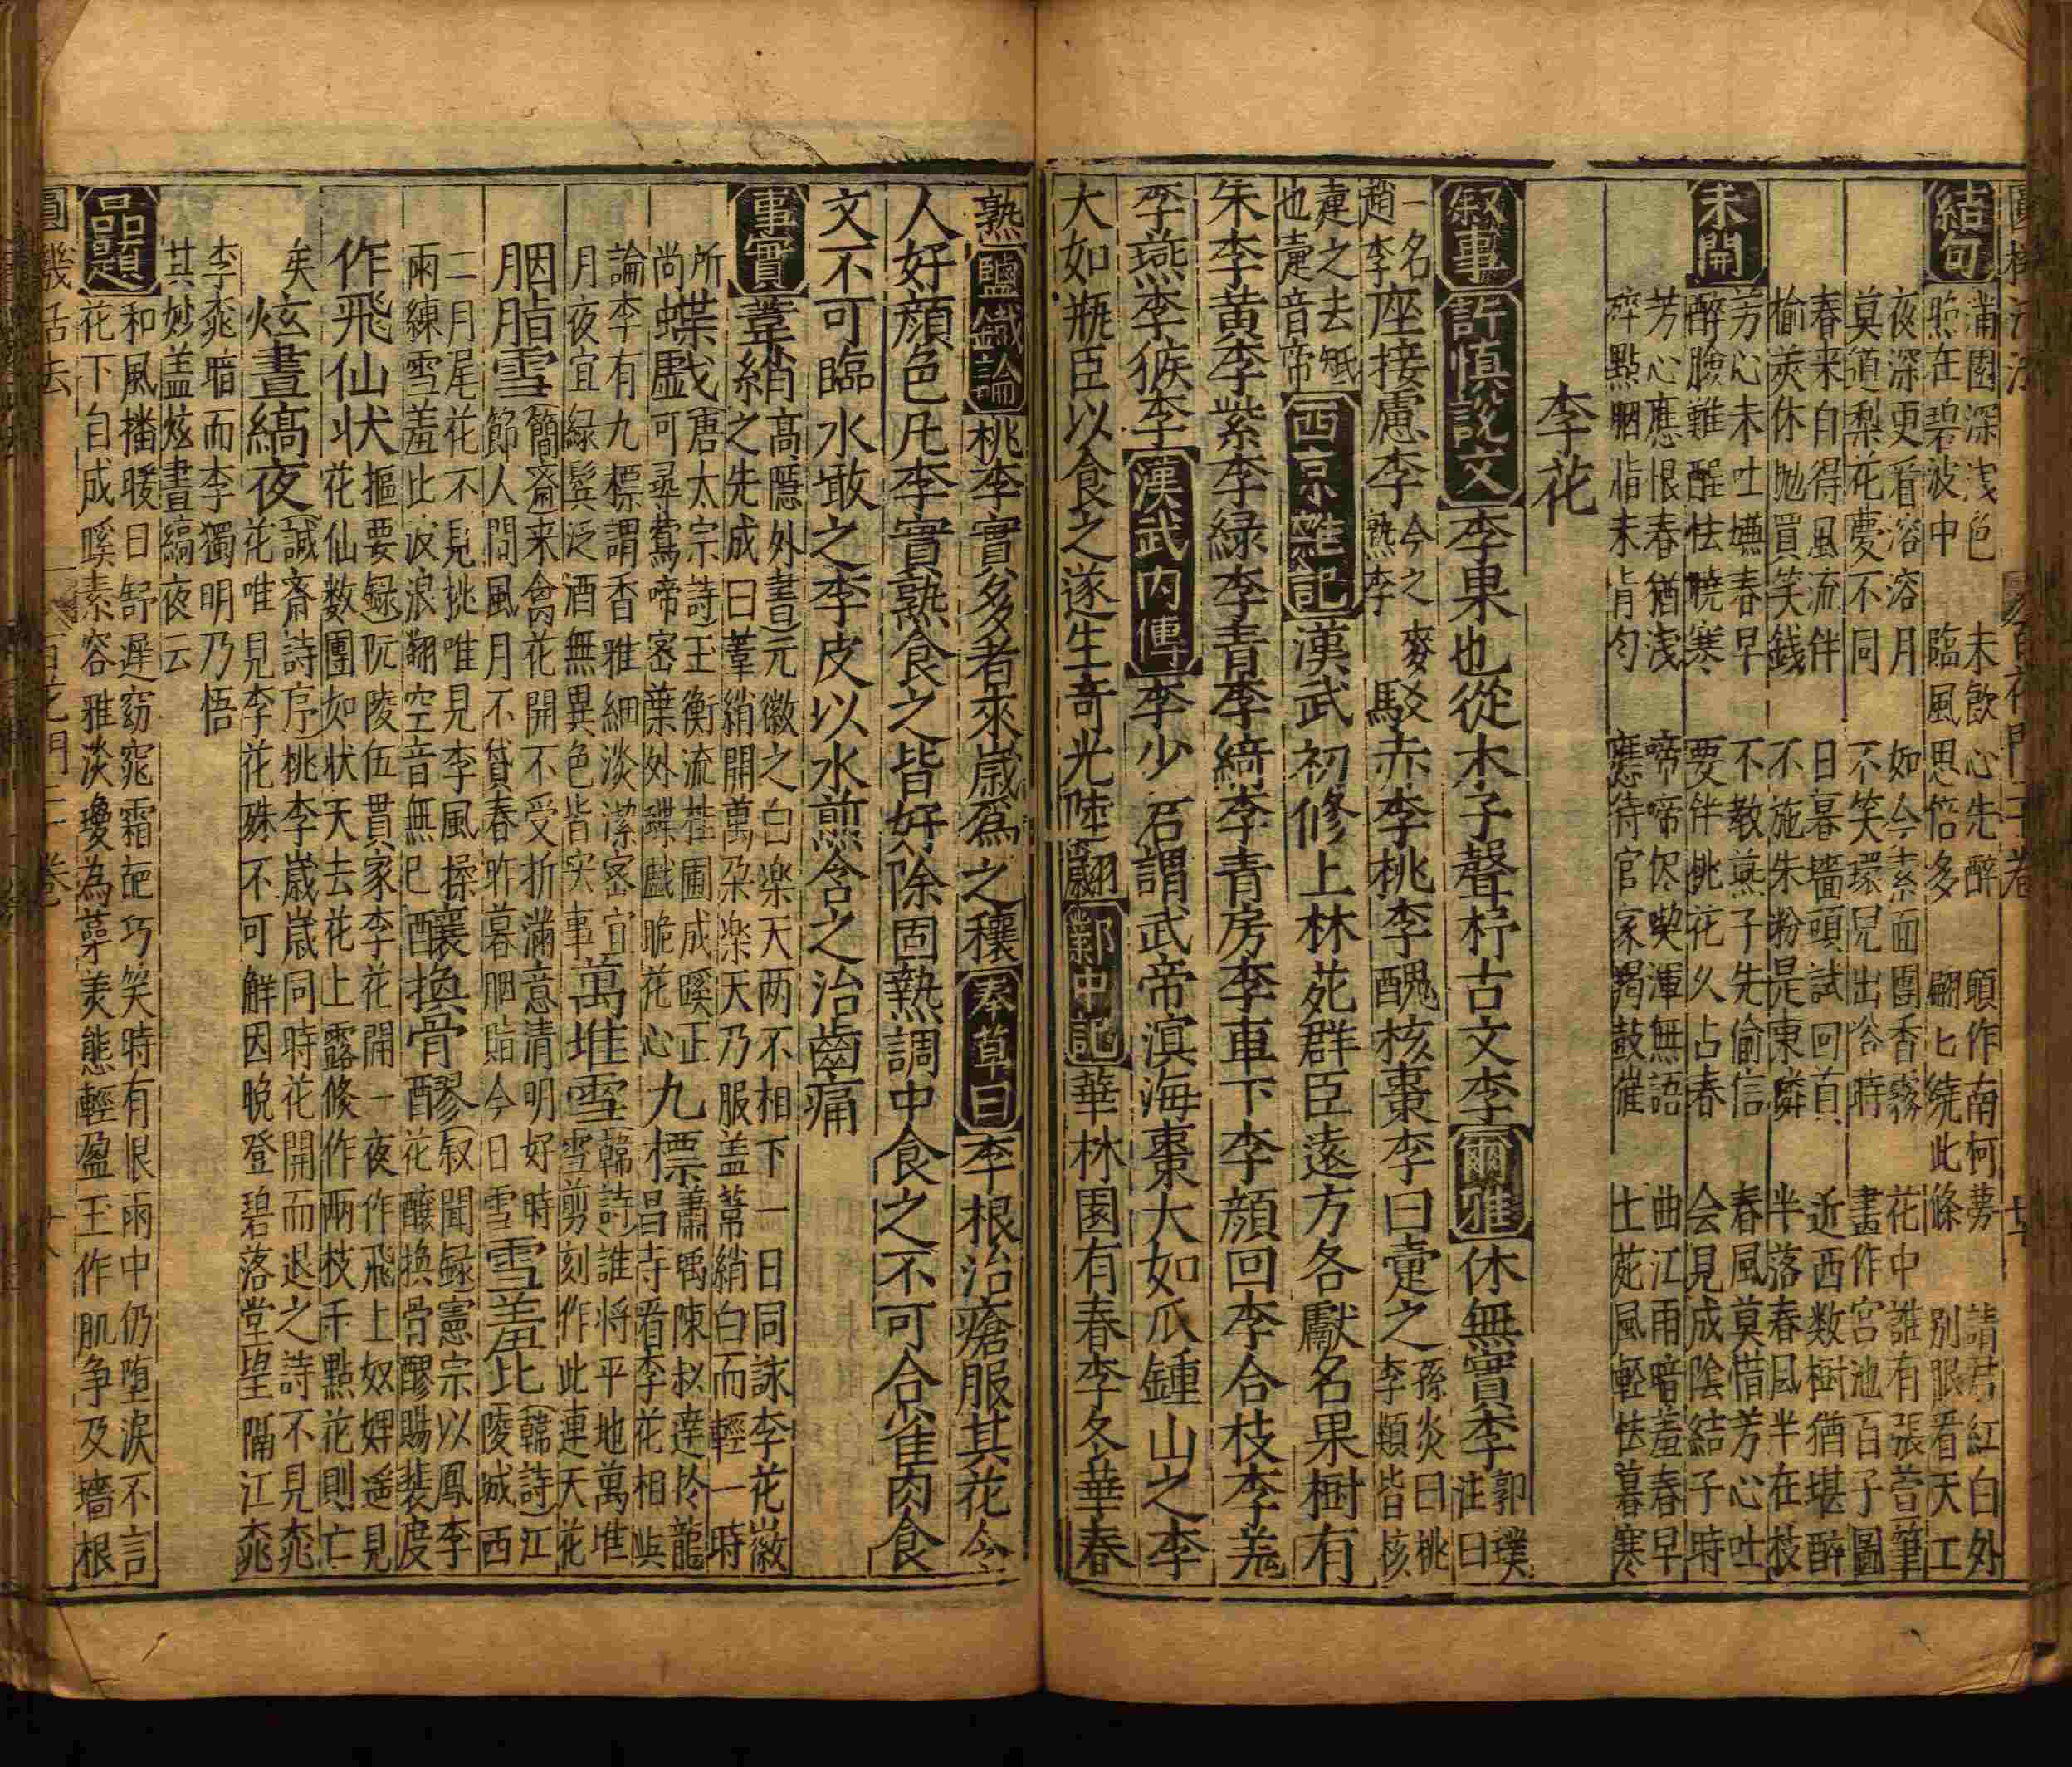 結句
滿園深淺色 未飲心先醉 願作南柯夢 請君紅白外
照在碧波中 臨風思倍多 翩匕繞此條 別眼看天工
夜深更看溶溶月 如今素面團香霧 花中誰有張萱筆
莫道梨花慶不同 不笑環兒出浴時 畫作宮池百子圖
春来白得風流伴 日暮墻頭試回首 近西数樹猶堪醉
榆莢休抛買笑錢 不施朱粉是東隣 半落春風半在枝
未開
芳心未吐嬾春早 不教燕子先偷信 春風莫惜芳心吐
醉臉難醒怯曉寒 要伴桃花久占春 会見成陰結子時
芳心應恨春猶浅 啼啼侭喫渾無語 曲江雨暗羞春早
碎點胭脂未肯勻 應待官家羯鼓催 士苑風輕怯暮寒
李花
叙事 許慎說文 李果也從木子聲杍古文李 爾雅 休無實李 郭璞注曰
一名趙李 座接慮李 今之熟李 麥 駁赤李桃李醜核棗李曰疐之 孫炎曰桃李類皆核
疐之去蔕也疐音帝 西京雜記 漢武初修上林苑群臣遠方各獻名果樹有
朱李黄李紫李綠李青李綺李青房李車下李顏回李合枝李羌
李燕李猴李 漢武内傳 李少君謂武帝滨海棗大如瓜鍾山之李
大如瓶臣以食之遂生奇光陸翽 鄴中記 華林園有春李冬華春
熟 鹽鐵論 桃李實多者來歳爲之穰 本草曰 李根治瘡服其花令
人好顏色凡李實熟食之皆好除固熱調中食之不可合雀肉食
文不可臨水敢之李皮以水煎含之治齒痛
事實 羣綃 高隱外書元徽之白楽天两不相下一日同詠李花徽
之先成曰羣綃開萬朶楽天乃服盖蒂綃白而輕一時
所尚 蝶戯 唐太宗詩玉衡流桂圃成蹊正
可尋鶯啼密葉外蝶戯脆花心 九標 蕭瑀陳叔達於龍
昌寺看李花相與
論李有九標謂香雅細淡潔密宜
月夜宜緑鬂泛酒無異色皆実事 萬堆雪 韓詩誰將平地萬堆
雪剪刻作此連天花
胭脂雪 簡齋来禽花開不受折滿意清明好時
節人間風月不貸春昨暮胭脂今日雪 雪羞比 韓詩江
陵城西
二月尾花不見桃唯見李風揉
雨練雪羞比波浪翻空音無巳 釀換骨醪 叙聞録憲宗以鳳李
花釀換骨醪賜裴度
作飛仙状 摳要録阮陵伍貫家李花開一夜作飛上奴婢遥見
花仙数團如状天去花上露條作两枝千點花則亡
矣 炫晝縞夜 誠齋詩序桃李歳歳同時花開而退之詩不見桃
花唯見李花殊不可解因晚登碧落堂望隔江桃
李桃暗而李獨明乃悟
其妙盖炫晝縞夜云
品題 和風播暖日舒遲窈窕霜葩巧笑時有恨雨中仍堕涙不言
花下自成蹊素容雅淡瓊為蘂美態輕盈玉作肌争及墻根